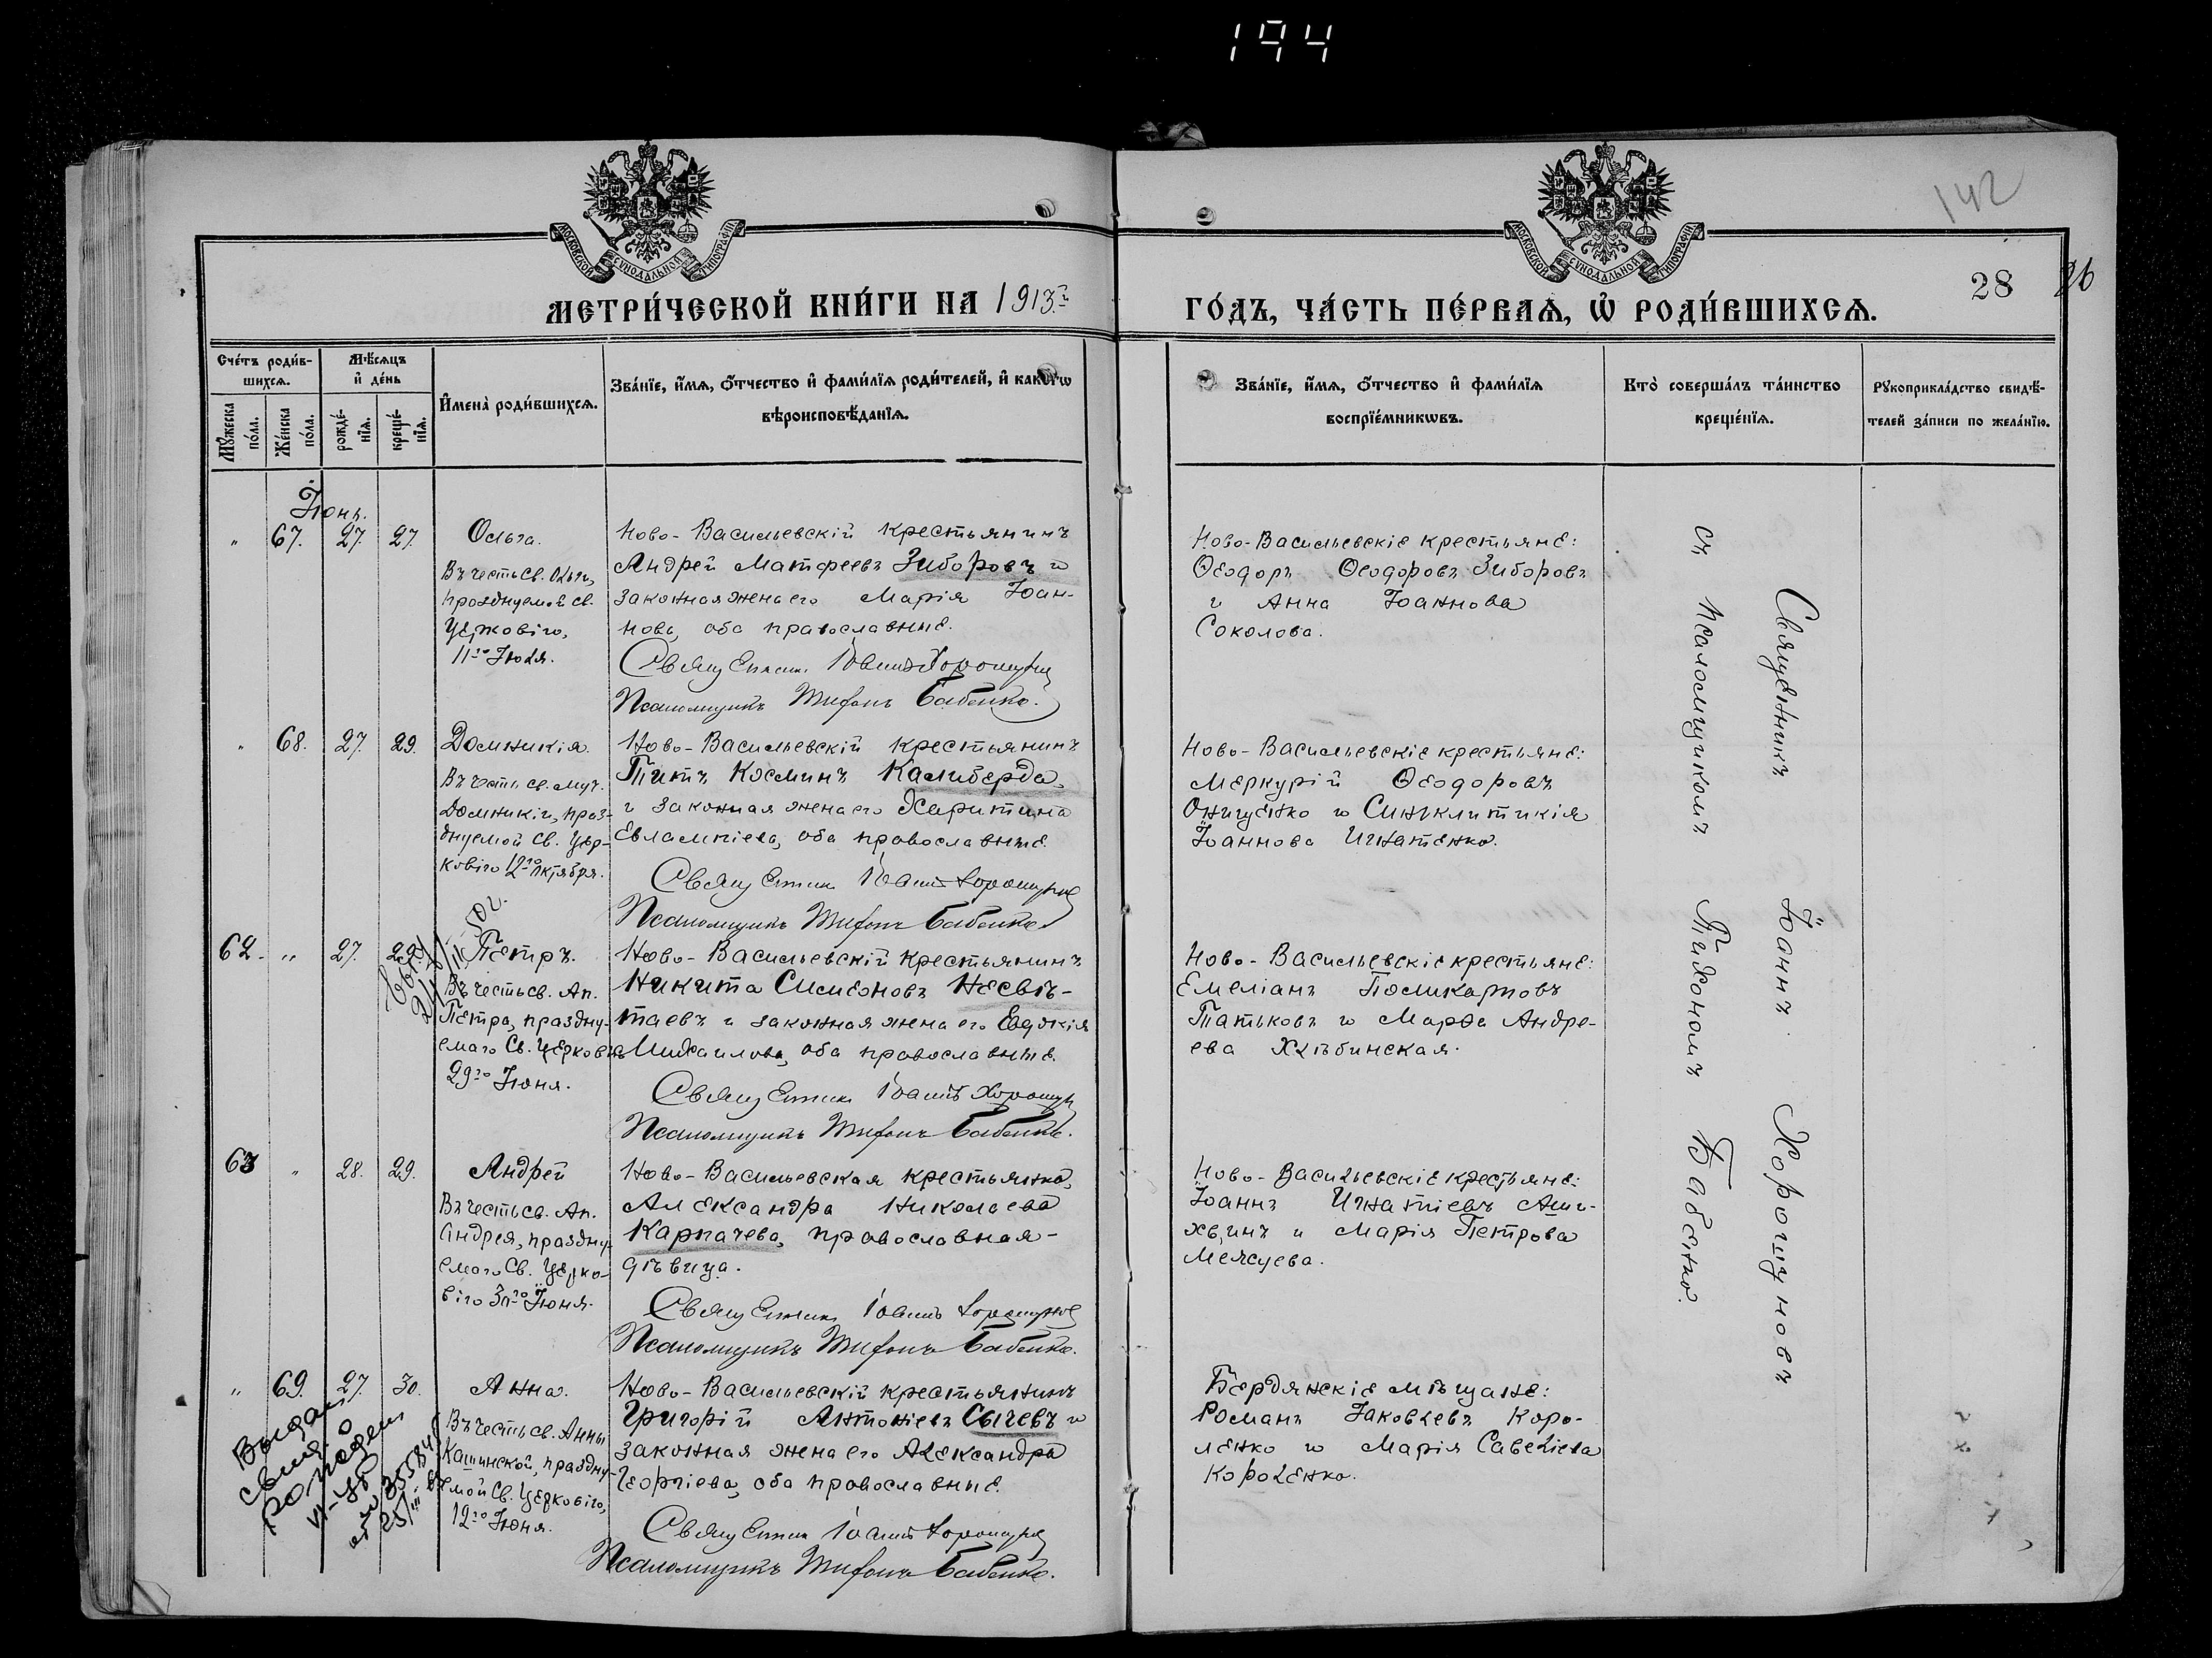 194
142
МОСКОВСКОЙ СѴНОДАЛЬНОЙ ТИПОГРАФІИ
МОСКОВСКОЙ СѴНОДАЛЬНОЙ ТИПОГРАФІИ
28 26
МЕТРИ́ЧЕСКОЙ КНИ́ГИ НА 1913й
ГО́ДЪ, ЧА́СТЬ ПЕ́РВАѦ, Ѡ҆ РОДИ́ВШИХСѦ.
Сче́тъ роди́в-
шихсѧ.
Мѣ́сѧцъ
и҆ де́нь
Мꙋ́жеска
по́ла.
Же́нска
по́ла.
рожде́-
нїѧ.
креще́-
нїѧ.
И҆мена̀ роди́вшихсѧ.
Зва́нїе, и҆́мѧ, ѻ҆́тчество и҆ фами́лїѧ роди́телей, и҆ како́гѡ
вѣроисповѣ́данїѧ.
Зва́нїе, и҆́мѧ, ѻ҆́тчество и҆ фами́лїѧ
воспрїе́мникѡвъ.
Кто̀ соверша́лъ та́инство
креще́нїѧ.
Рꙋкоприкла́дство свидѣ́-
телей за́писи по жела́нїю.
Іюнь.
" 67. 27. 27.
Ольга.
Въ честь св. Ольги,
празднуемой св.
Церковію,
11го Іюля.
Ново-Васильевскій крестьянинъ
Андрей Матѳеевъ Зиборовъ и
законная жена его Марія Іоан-
нова, оба православные.
Священник Іоаннъ Хорошунов
Псаломщикъ Тихонъ Бабенко.
Ново-Васильевскіе крестьяне:
Ѳеодоръ Ѳеодоровъ Зиборовъ
и Анна Іоаннова
Соколова.
" 68. 27. 29.
Домникія.
Въ честь св. муч.
Домникіи, праз-
днуемой Св. Цер-
ковію 12го Октября.
Ново-Васильевскій крестьянинъ
Титъ Косминъ Калиберда,
и законная жена его Харитина
Евлампіева, оба православные.
Священник Іоаннъ Хорошунов
Псаломщикъ Тихонъ Бабенко.
Ново-Васильевскіе крестьяне:
Меркурій Ѳеодоровъ
Онищенко и Синклитикія
Іоаннова Игнатенко.
62. " 27. 29.
Петръ.
Въ честь св. Ап.
Петра, праздну-
емаго Св. Церковію
29го Іюня.
Ново-Васильевскій крестьянинъ
Никита Симеоновъ Несвѣ-
таевъ и законная жена его Евдокія
Михаилова, оба православные.
Священник Іоаннъ Хорошунов
Псаломщикъ Тихонъ Бабенко.
Ново-Васильевскіе крестьяне:
Емеліанъ Поликарповъ
Татьковъ и Марѳа Андре-
ева Хлѣбинская.
63 " 28. 29.
Андрей
Въ честь св. Ап.
Андрея, праздну-
емаго Св. Церко-
вію 30го Іюня.
Ново-Васильевская крестьянка,
Александра Николаева
Карпачева, православная-
дѣвица.
Священник Іоаннъ Хорошунов
Псаломщикъ Тихонъ Бабенко.
Ново-Васильевскіе крестьяне:
Іоаннъ Игнатіевъ
и Марія Петрова
" 69. 27. 30.
Анна.
Въ честь св. Анны
Кашинской, праздну-
емой Св. Церковію,
12го Іюня.
Выдан
о рожден
Ново-Васильевскій крестьянинъ
Григорій Антоніевъ Сычевъ и
законная жена его Александра
Георгіева, оба православные.
Священник Іоаннъ Хорошунов
Псаломщикъ Тихонъ Бабенко.
Бердянскіе мѣщане:
Романъ Іаковлевъ Коро-
ленко и Марія Савеліева
Короленко.
Священникъ Іоаннъ Хорошуновъ
съ псаломщикомъ Тихономъ Бабенко.